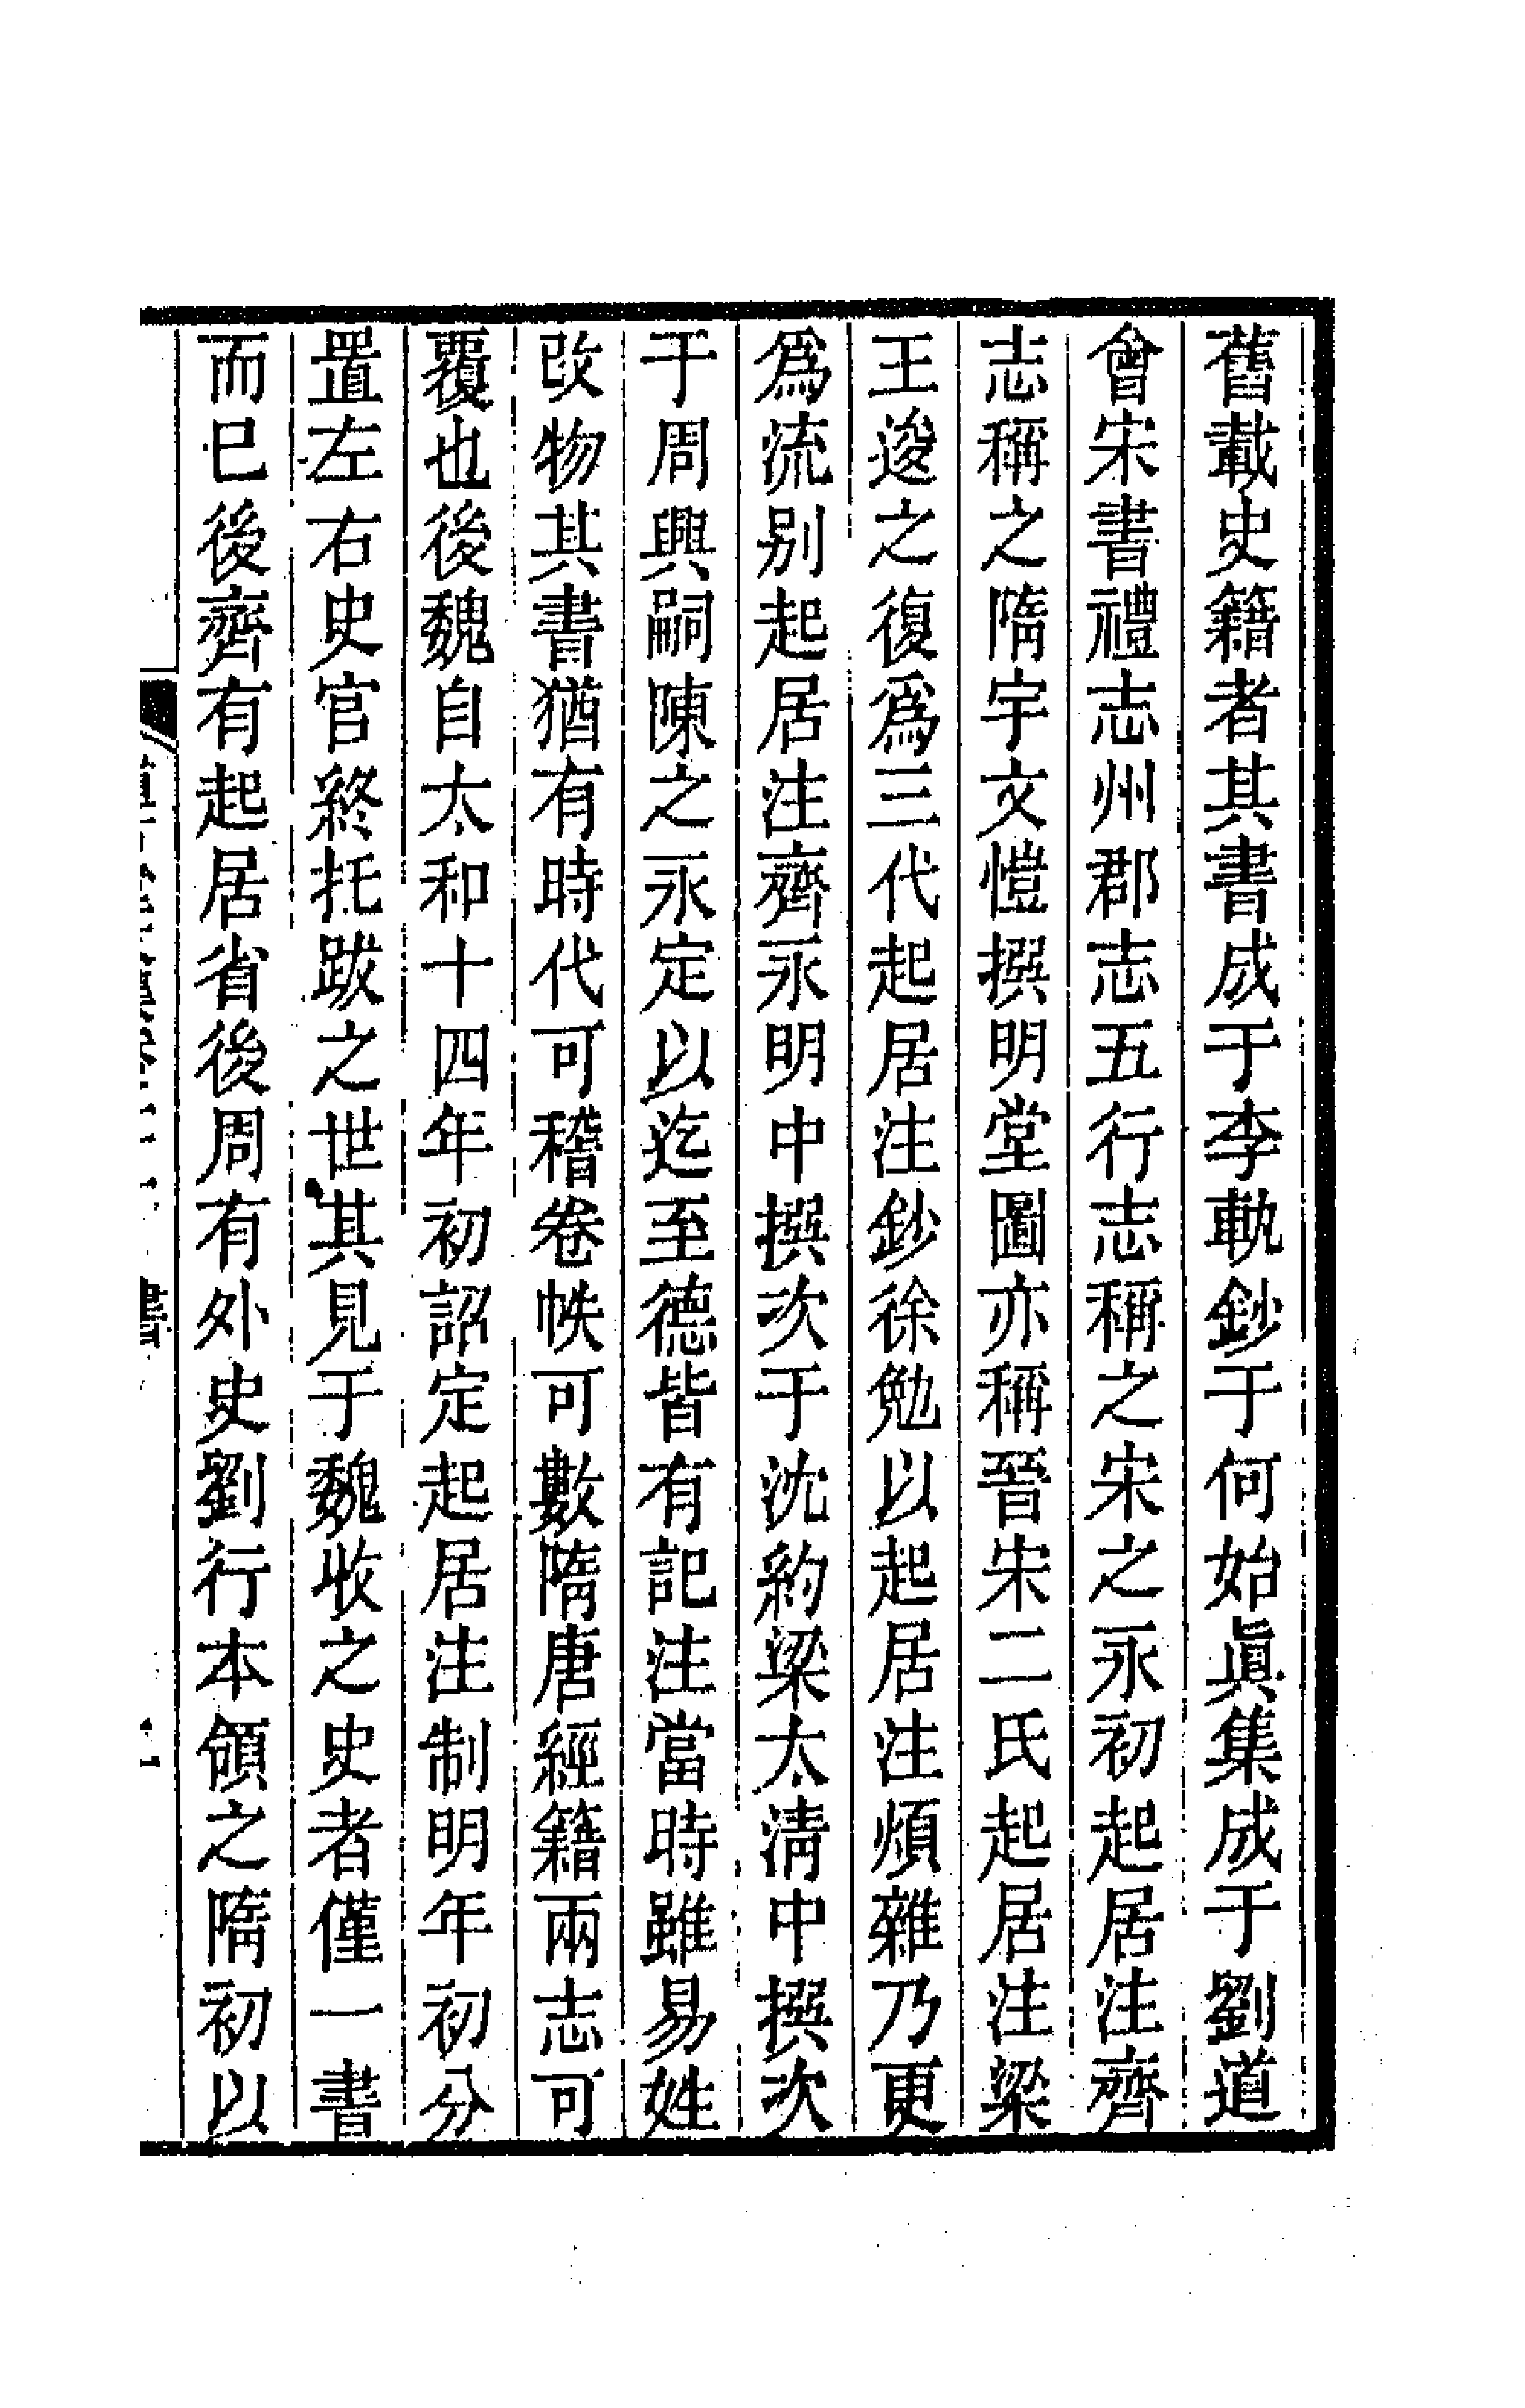 舊載史籍者其書成于李軌鈔于何始眞集成于劉道
會宋書禮志州郡志五行志稱之宋之永初起居注齊
志稱之隋宇文愷撰明堂圖亦稱晉宋二氏起居注梁
王逡之復爲三代起居注鈔徐勉以起居注煩雜乃更
爲流别起居注齊永明中撰次于沈約梁太淸中撰次
于周興嗣陳之永定以迄至德皆有記注當時雖易姓
改物其書猶有時代可稽卷帙可數隋唐經籍兩志可
覆也後魏自太和十四年初詔定起居注制明年初分
置左右史官終托跋之世其見于魏收之史者僅一書
而已後齊有起居省後周有外史劉行本領之隋初以